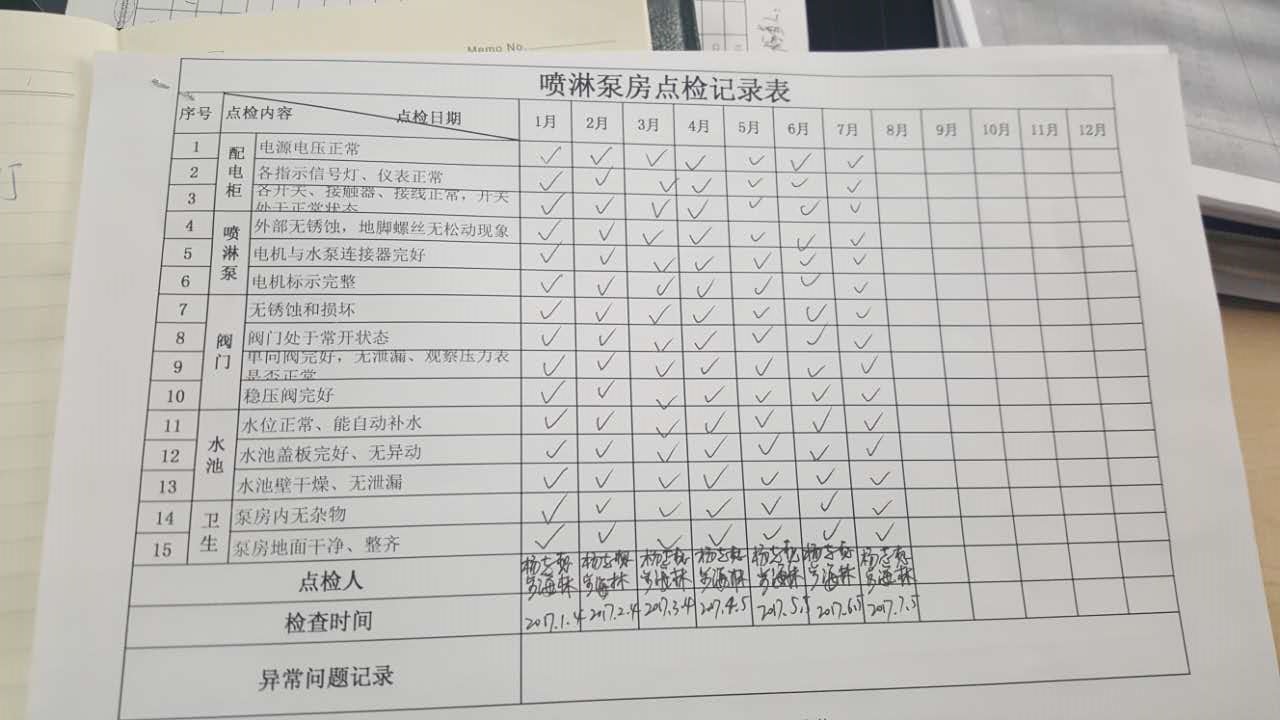 Memo No.
喷淋泵房点检记录表
序号 点检内容 点检日期 1月 2月 3月 4月 5月 6月 7月 8月 9月 10月 11月 12月
配电柜
1 电源电压正常 ✓ ✓ ✓ ✓ ✓ ✓ ✓
2 各指示信号灯、仪表正常 ✓ ✓ ✓ ✓ ✓ ✓ ✓
3 各开关、接触器、接线正常，开关
处于正常状态 ✓ ✓ ✓ ✓ ✓ ✓ ✓
喷淋泵
4 外部无锈蚀，地脚螺丝无松动现象 ✓ ✓ ✓ ✓ ✓ ✓ ✓
5 电机与水泵连接器完好 ✓ ✓ ✓ ✓ ✓ ✓ ✓
6 电机标示完整 ✓ ✓ ✓ ✓ ✓ ✓ ✓
阀门
7 无锈蚀和损坏 ✓ ✓ ✓ ✓ ✓ ✓ ✓
8 阀门处于常开状态 ✓ ✓ ✓ ✓ ✓ ✓ ✓
9 单向阀完好，无泄漏、观察压力表
是否正常 ✓ ✓ ✓ ✓ ✓ ✓ ✓
10 稳压阀完好 ✓ ✓ ✓ ✓ ✓ ✓ ✓
水池
11 水位正常、能自动补水 ✓ ✓ ✓ ✓ ✓ ✓ ✓
12 水池盖板完好、无异动 ✓ ✓ ✓ ✓ ✓ ✓ ✓
13 水池壁干燥、无泄漏 ✓ ✓ ✓ ✓ ✓ ✓ ✓
卫生
14 泵房内无杂物 ✓ ✓ ✓ ✓ ✓ ✓ ✓
15 泵房地面干净、整齐 ✓ ✓ ✓ ✓ ✓ ✓ ✓
点检人
检查时间 2017.1.4 2017.2.4 2017.3.4 2017.4.5 2017.5.5 2017.6.5 2017.7.5
异常问题记录